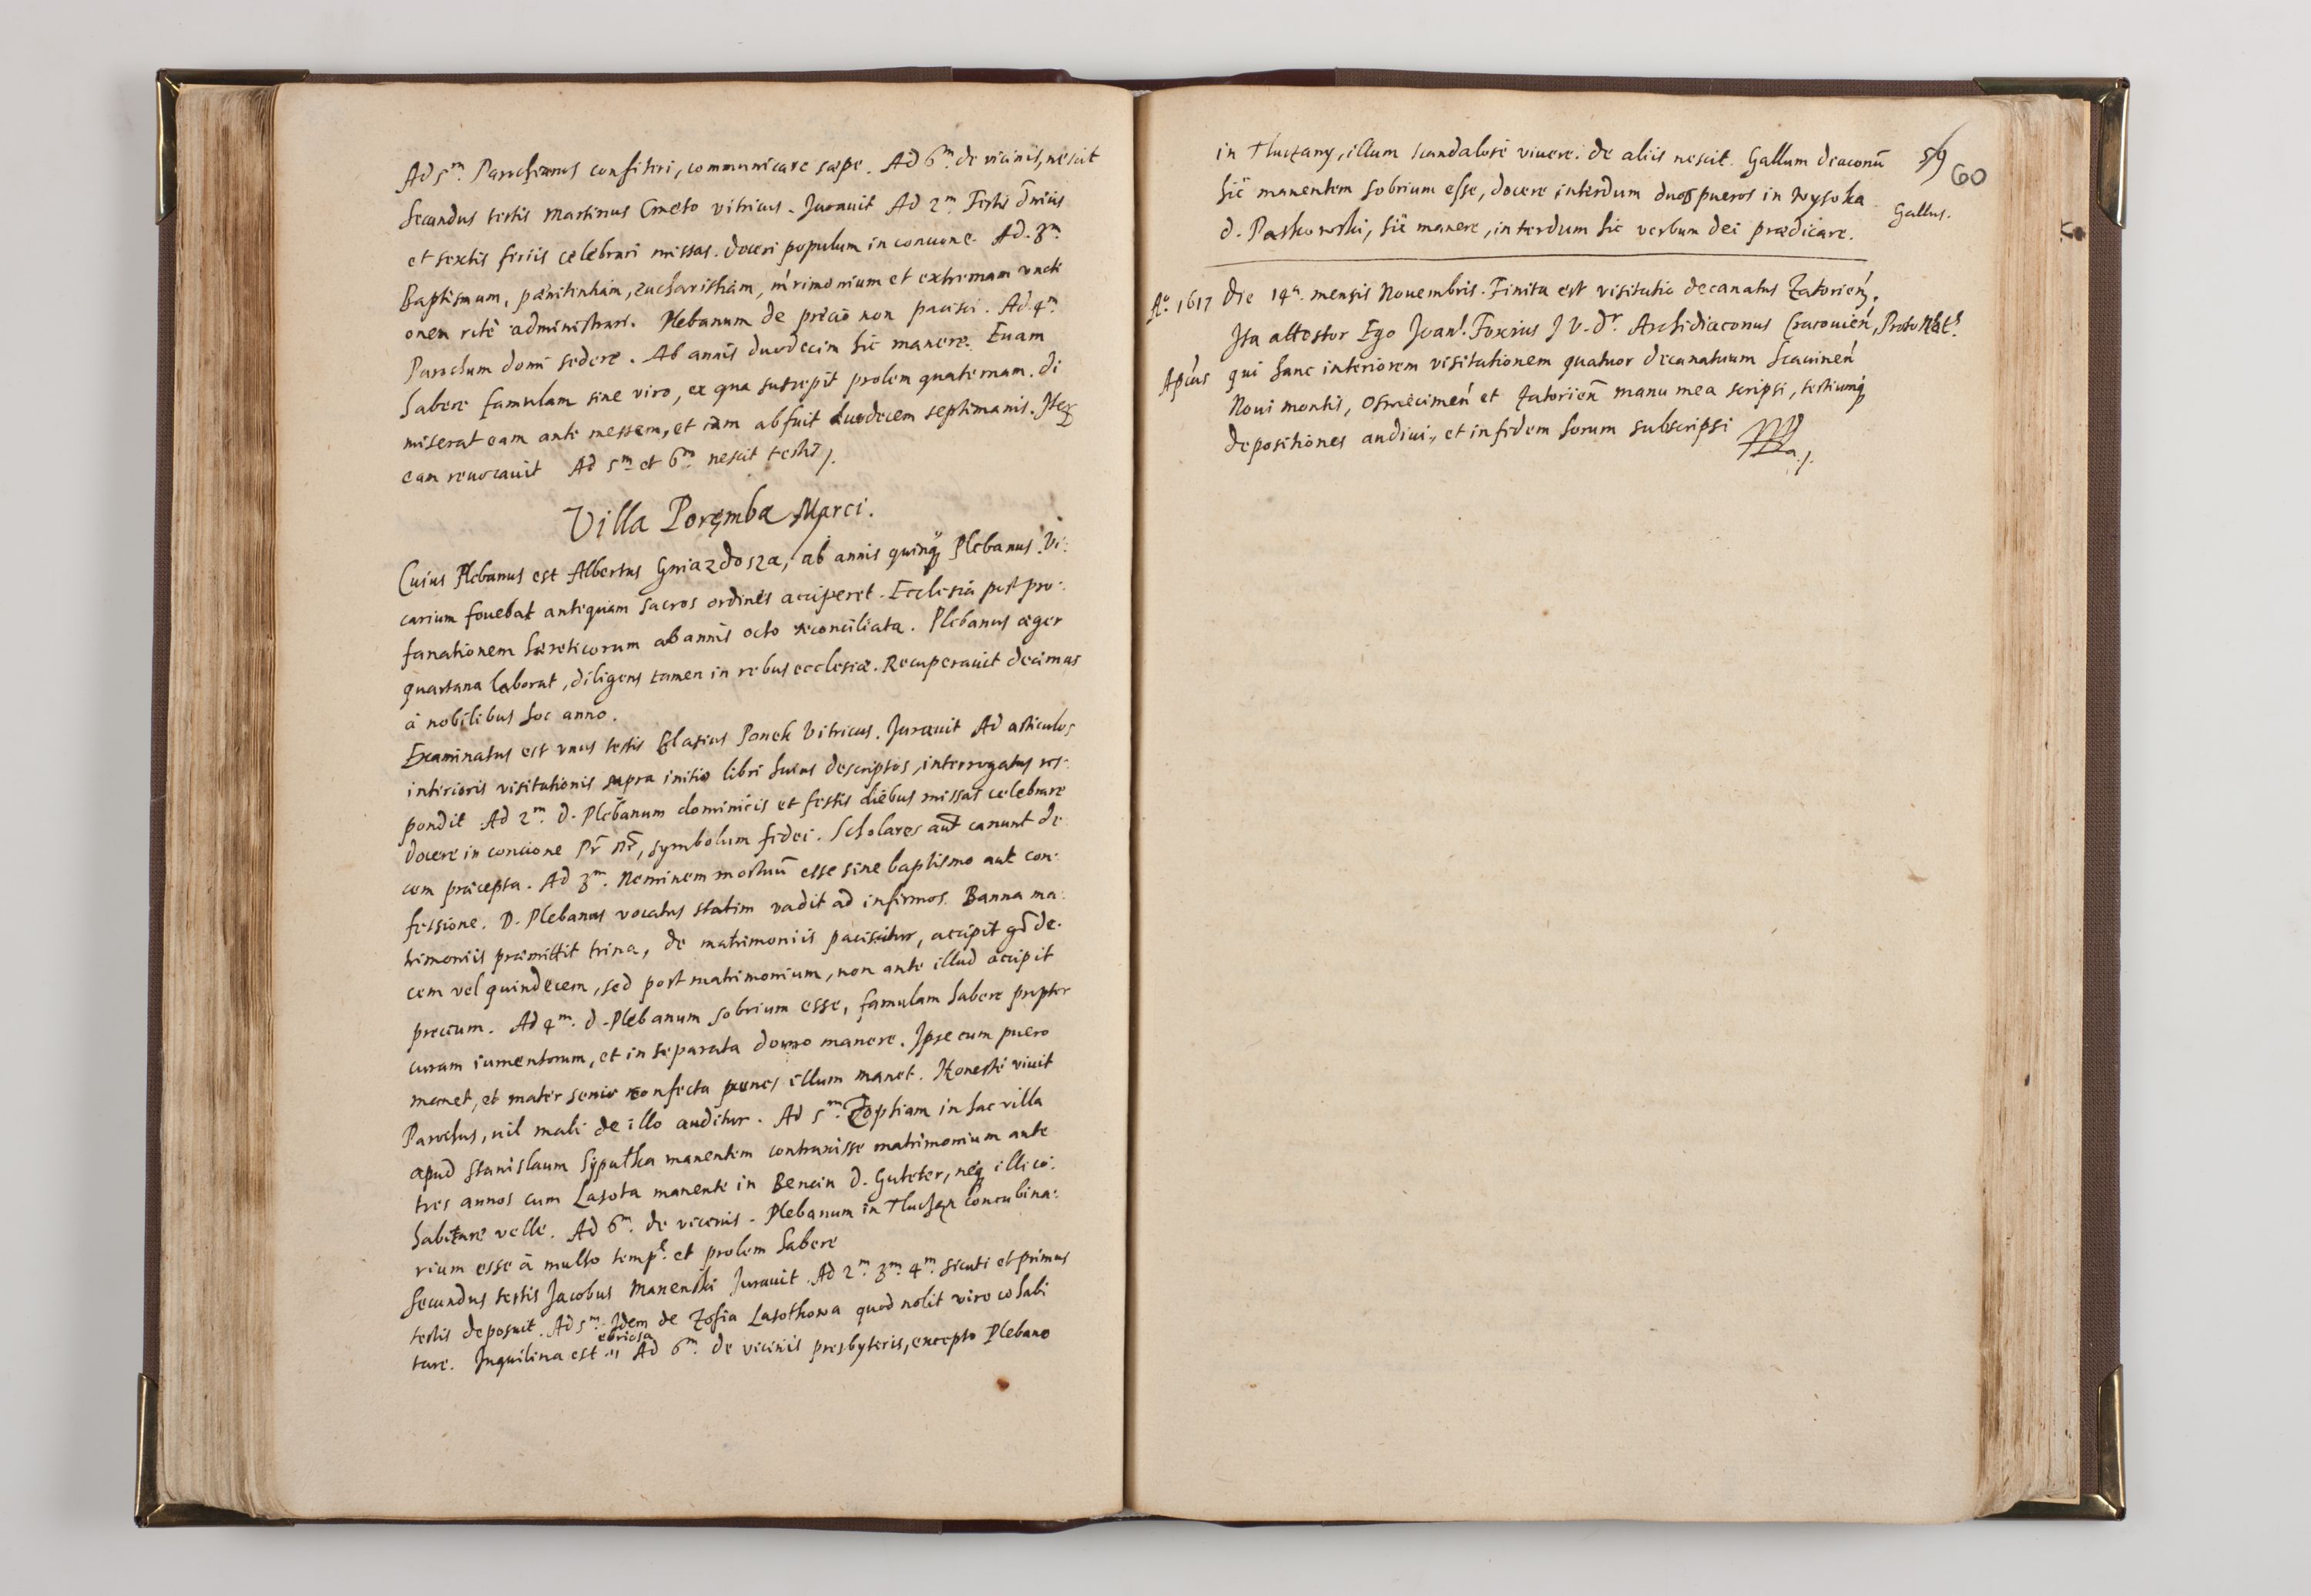 Ad 5m. Parochianos confiteri, communicare sæpe. Ad 6m. de vicinis, nescit
Secundus testis Martinus Cmeto vitricus. Jurauit Ad 2m. Festis dnicis
et sextis feriis celebrari missas. doceri populum in concione. Ad. 3m.
Baptismum, pœnitentiam, eucharistiam, mrimonium et extremam vncti
onem ritè administrari. Plebanum de precio non pacisci. Ad. 4m.
Parochum domi sedere. Ab annis duodecim hic manere. Euam
habere famulam sine viro, ex qua suscepit prolem quaternam. di
miserat eam ante messem, et iam abfuit duodecem septimanis. Iterum
eam reuocauit Ad 5m et 6m nescit testis.
Villa Poręmba Marci.
Cuius Plebanus est Albertus Gniazdosza, ab annis quinq Plebanus. Vi:
carium fouebat antequam sacros ordines acciperet. Ecclesia post pro:
fanationem hæreticorum ab annis octo reconciliata. Plebanus æger
quartana laborat, diligens tamen in rebus ecclesiæ. Recuperauit decimas
à nobilibus hoc anno.
Examinatus est vnus testis Blasius Ponek Vitricus. Jurauit Ad articulos
interioris visitationis supra initio libri huius descriptos, interrogatus res:
pondit Ad 2m. d. Plebanum dominicis et festis diebus missas celebrare
docere in concione Pr nr, symbolum fidei. Scholares aut canunt de
cem præcepta. Ad 3m. Neminem mortuū esse sine baptismo aut con:
fessione. D. Plebanus vocatus statim vadit ad infirmos. Banna ma:
trimoniis præmittit trina, de matrimoniis paciscitur, accipit gr de:
cem vel quindecem, sed post matrimonium, non ante illud accipit
precium. Ad 4m. d. Plebanum sobrium esse, famulam habere propter
curam iumentorum, et in separata domo manere. Ipse cum puero
manet, et mater senio confecta penes illum manet. Honestè viuit
Parochus, nil mali de illo auditur. Ad 5m. Zophiam in hac villa
apud Stanislaum Sÿputka manentem contraxisse matrimonium ante
tres annos cum Lasota manente in Bencin d. Guteter, neq illi co:
habitare velle. Ad 6m. de vicinis. Plebanum in Tluczan concubina:
rium esse à multo temp. et prolem habere
Secundus testis Jacobus Manenski Jurauit. Ad 2m. 3m. 4m. sicuti et primus
testis deposuit. Ad 5m. Idem de Zofia Lasothowa quod nolit viro cohabi
tare. Inquilina est ebriosa Ad 6m. de vicinis presbyteris, excepto Plebano
in Tluczany, illum scandalosè viuere. de aliis nescit. Gallum diaconū
59 60
hic manentem sobrium esse, docere interdum duos pueros in Wysoka
Gallus.
d. Paskowski, hic manere, interdum hic verbum dei prædicare.
Ao. 1617 Die 14a. mensis Nouembris. Finita est visitatio decanatus Zatorien.
Ita attestor Ego Joan. Foxius J V. Dr. Archidiaconus Cracouien, Protonot.
Aplcus qui hanc interiorem visitationem quatuor decanatuum Scauinen
Noui montis, Osuiecimen et Zatorien manu mea scripsi, testiumq
depositiones audiui, et in fidem horum subscripsi